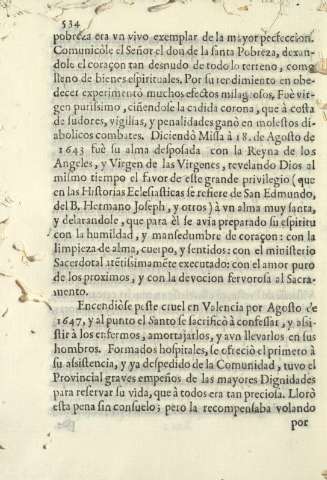 534
pobreza era vn vivo exemplar de la mayor perfeccion.
Comunicòle el Señor el don de la santa Pobreza, dexan-
dole el coraçon tan desnudo de todo lo terreno, como
lleno de bienes espirituales. Por su rendimiento en obe-
decer experimentò muchos efectos milagrosos. Fuè vir-
gen purissimo, ciñendose la cãdida corona, que à costa
de sudores, vigilias, y penalidades ganò en molestos di-
abolicos combates. Diciendo Missa à 18. de Agosto de
1643 fuè su alma desposada con la Reyna de los
Angeles, y Virgen de las Virgenes, revelando Dios al
mismo tiempo el favor de este grande privilegio (que
en las Historias Eclesiasticas se refiere de San Edmundo,
del B. Hermano Joseph, y otros) à vn alma muy santa,
y declarandole, que para èl se avia preparado su espiritu
con la humildad, y mansedumbre de coraçon: con la
limpieza de alma, cuerpo, y sentidos: con el ministerio
Sacerdotal atẽtissimamẽte executado: con el amor puro
de los proximos, y con la devocion fervorosa al Sacra-
mento.
Encendiòse peste cruel en Valencia por Agosto de
1647, y al punto el Santo se sacrificò à confessar, y asi-
stir à los enfermos, amortajarlos, y aun llevarlos en sus
hombros. Formados hospitales, se ofreciò el primero à
su asistencia, y ya despedido de la Comunidad, tuvo el
Provincial graves empeños de las mayores Dignidades
para reservar su vida, que à todos era tan preciosa. Llorò
esta pena sin consuelo; pero la recompensaba volando
por